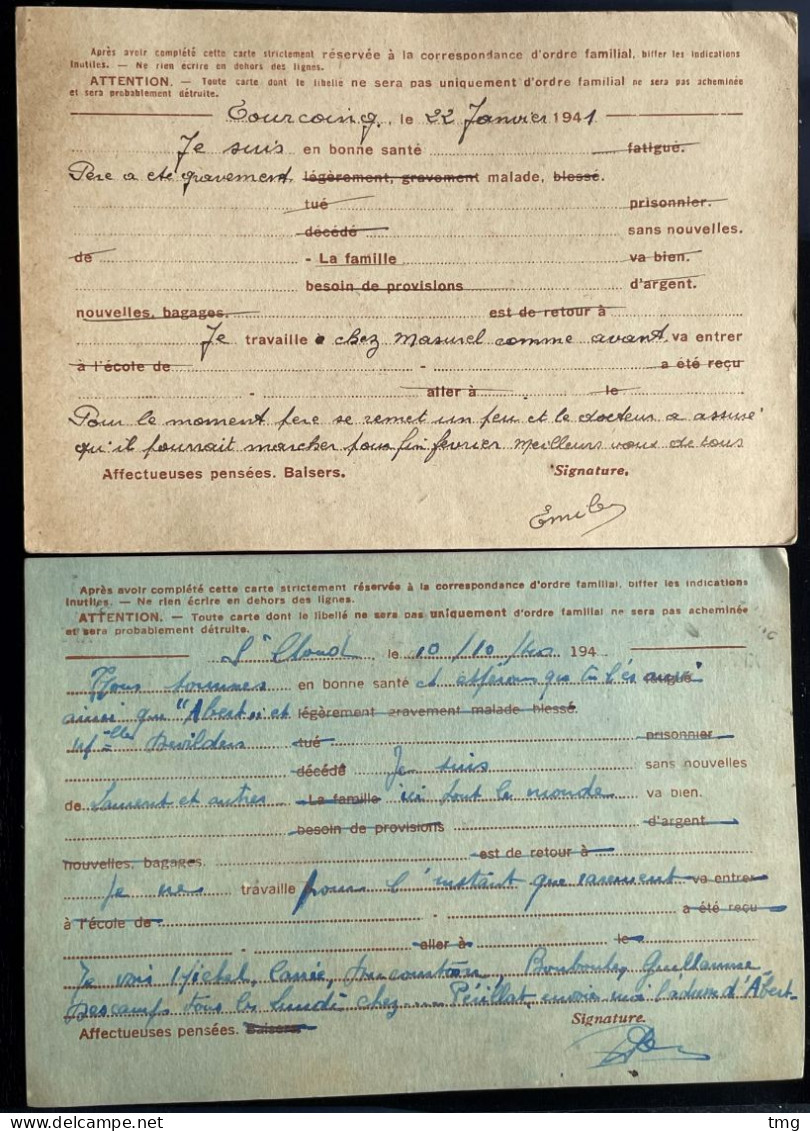 Après avoir complété cette carte strictement réservée à la correspondance d'ordre familial, biffer les indications
inutiles. — Ne rien écrire en dehors des lignes.
ATTENTION. — Toute carte dont le libellé ne sera pas uniquement d'ordre familial ne sera pas acheminée
et sera probablement détruite.
Tourcoing, le 22 Janvier 1941
Je suis en bonne santé fatigué.
Père a été gravement légèrement, gravement malade, blessé.
tué prisonnier.
décédé sans nouvelles.
de - La famille va bien.
besoin de provisions d'argent.
nouvelles, bagages. est de retour à
Je travaille chez Masurel comme avant. va entrer
à l'école de - a été reçu
- aller à le
Pour le moment père se remet un peu et le docteur a assuré
qu'il pourrait marcher pour fin février meilleurs voeux de tous
Affectueuses pensées. Baisers. Signature.
Emile
Après avoir complété cette carte strictement réservée à la correspondance d'ordre familial, biffer les indications
inutiles. — Ne rien écrire en dehors des lignes.
ATTENTION. — Toute carte dont le libellé ne sera pas uniquement d'ordre familial ne sera pas acheminée
et sera probablement détruite.
St Cloud, le 10/10/40 194
Nous sommes en bonne santé et espérons que tu l'es aussi fatigué
ainsi que "Abert" et légèrement gravement malade blessé.
Mlle Devilders tué prisonnier
décédé Je suis sans nouvelles
de Laurent et autres - La famille ici tout le monde va bien.
besoin de provisions d'argent.
nouvelles, bagages. est de retour à
Je ne travaille pour l'instant que rarement va entrer
à l'école de - a été reçu
- aller à le
Je vois Michel, Guillaume
Descamps tous les lundi chez Peuillat, envoie moi l'adresse d'Abert
Affectueuses pensées. Baisers. Signature.
tmg